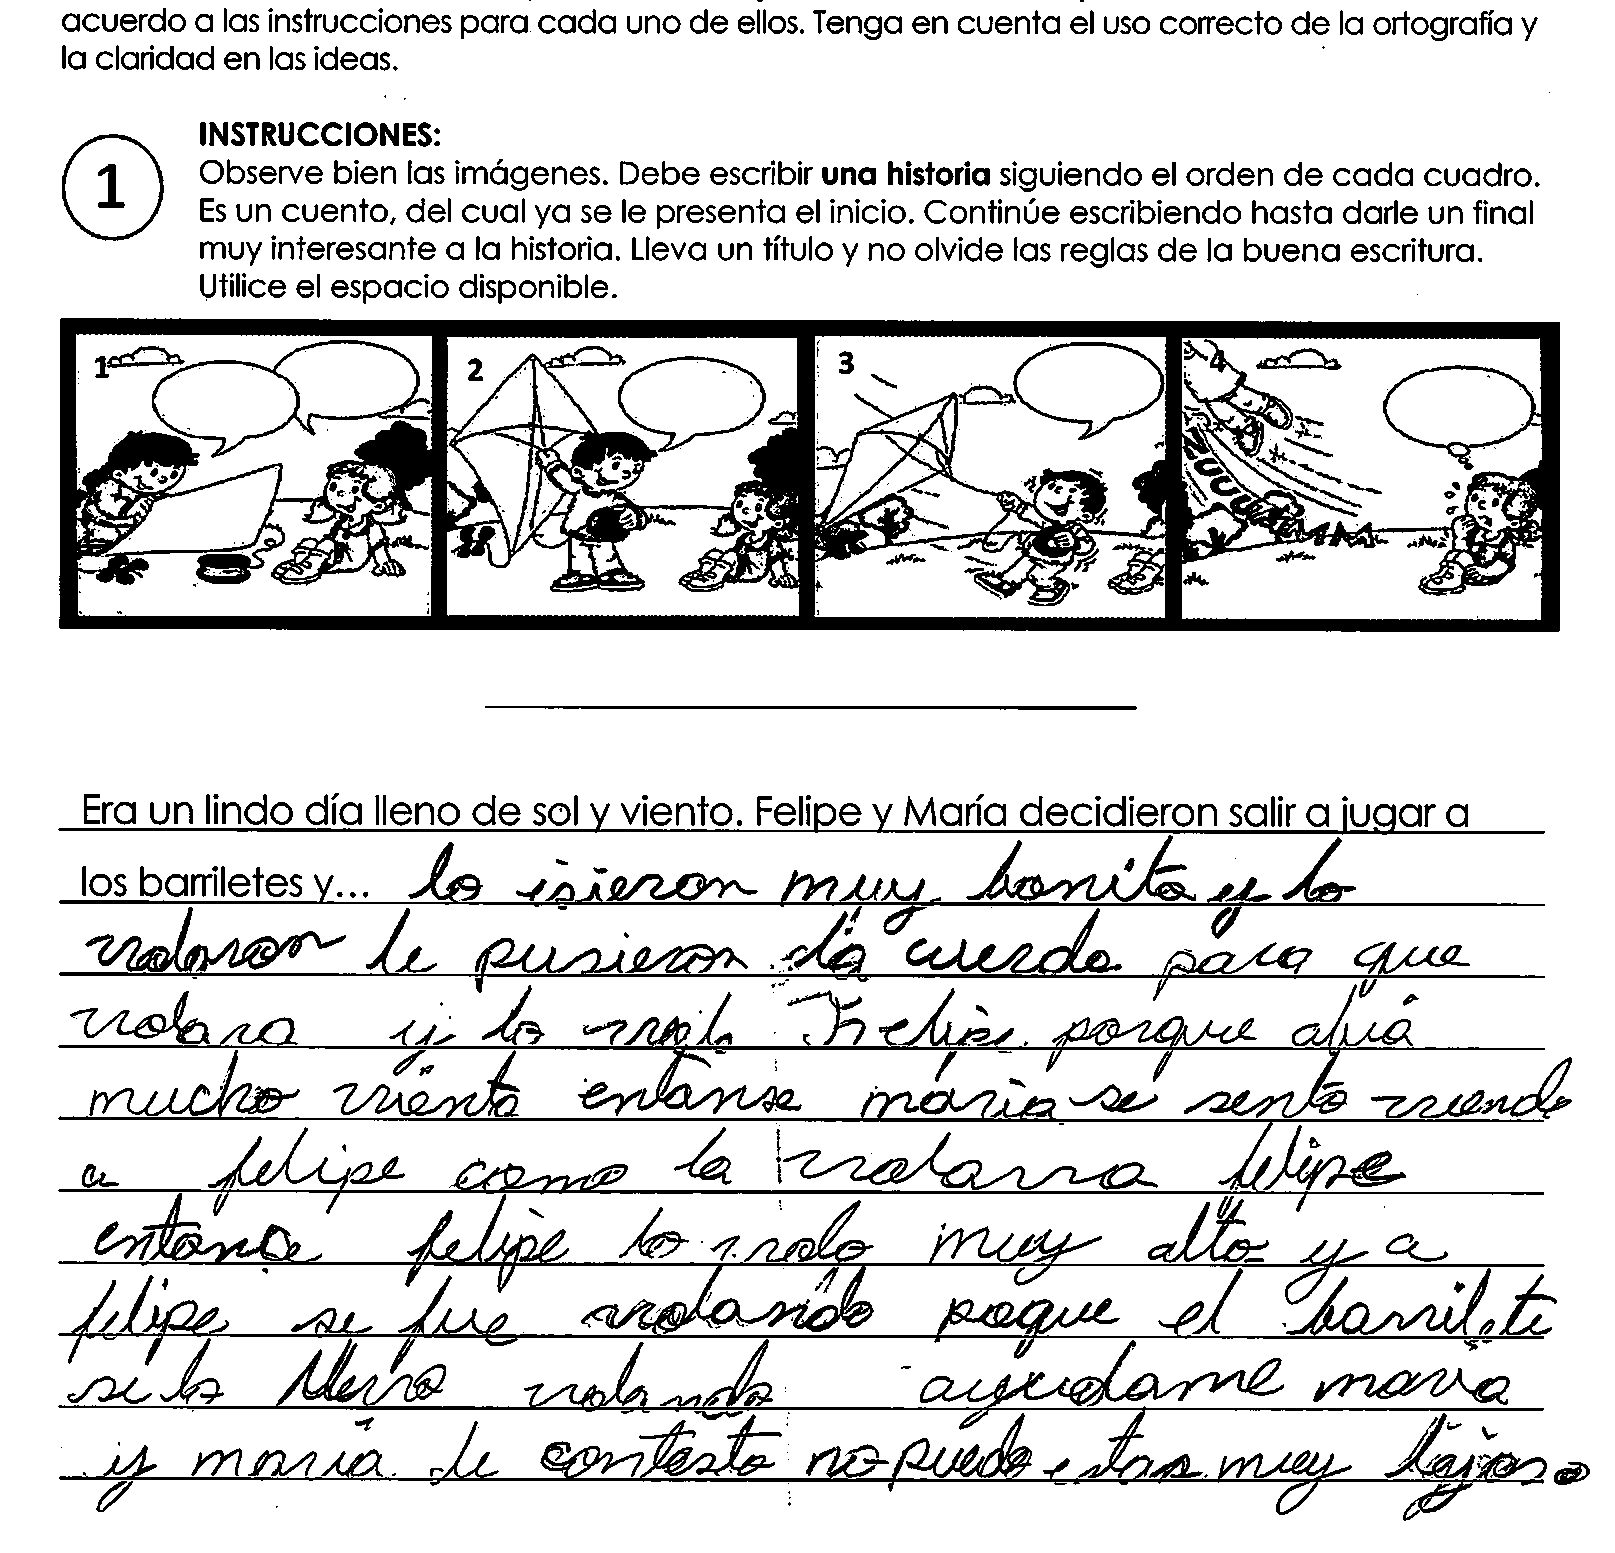 acuerdo a las instrucciones para cada uno de ellos. Tenga en cuenta el uso correcto de la ortografía y
la claridad en las ideas.
1
INSTRUCCIONES:
Observe bien las imágenes. Debe escribir una historia siguiendo el orden de cada cuadro.
Es un cuento, del cual ya se le presenta el inicio. Continúe escribiendo hasta darle un final
muy interesante a la historia. Lleva un título y no olvide las reglas de la buena escritura.
Utilice el espacio disponible.
1 2 3 4
Era un lindo día lleno de sol y viento. Felipe y María decidieron salir a jugar a
los barriletes y... lo isieron muy bonito y lo
volaron le pusieron la cuerda para que
volara y lo Felipe porque abia
mucho viento entonse maria se sento viendo
a felipe como lo volarra felipe
entonce felipe lo volo muy alto y a
felipe se fue volando poque el barrilete
se lo llevo volando ayudame maria
y maria le contesto no puedo estas muy lajos.